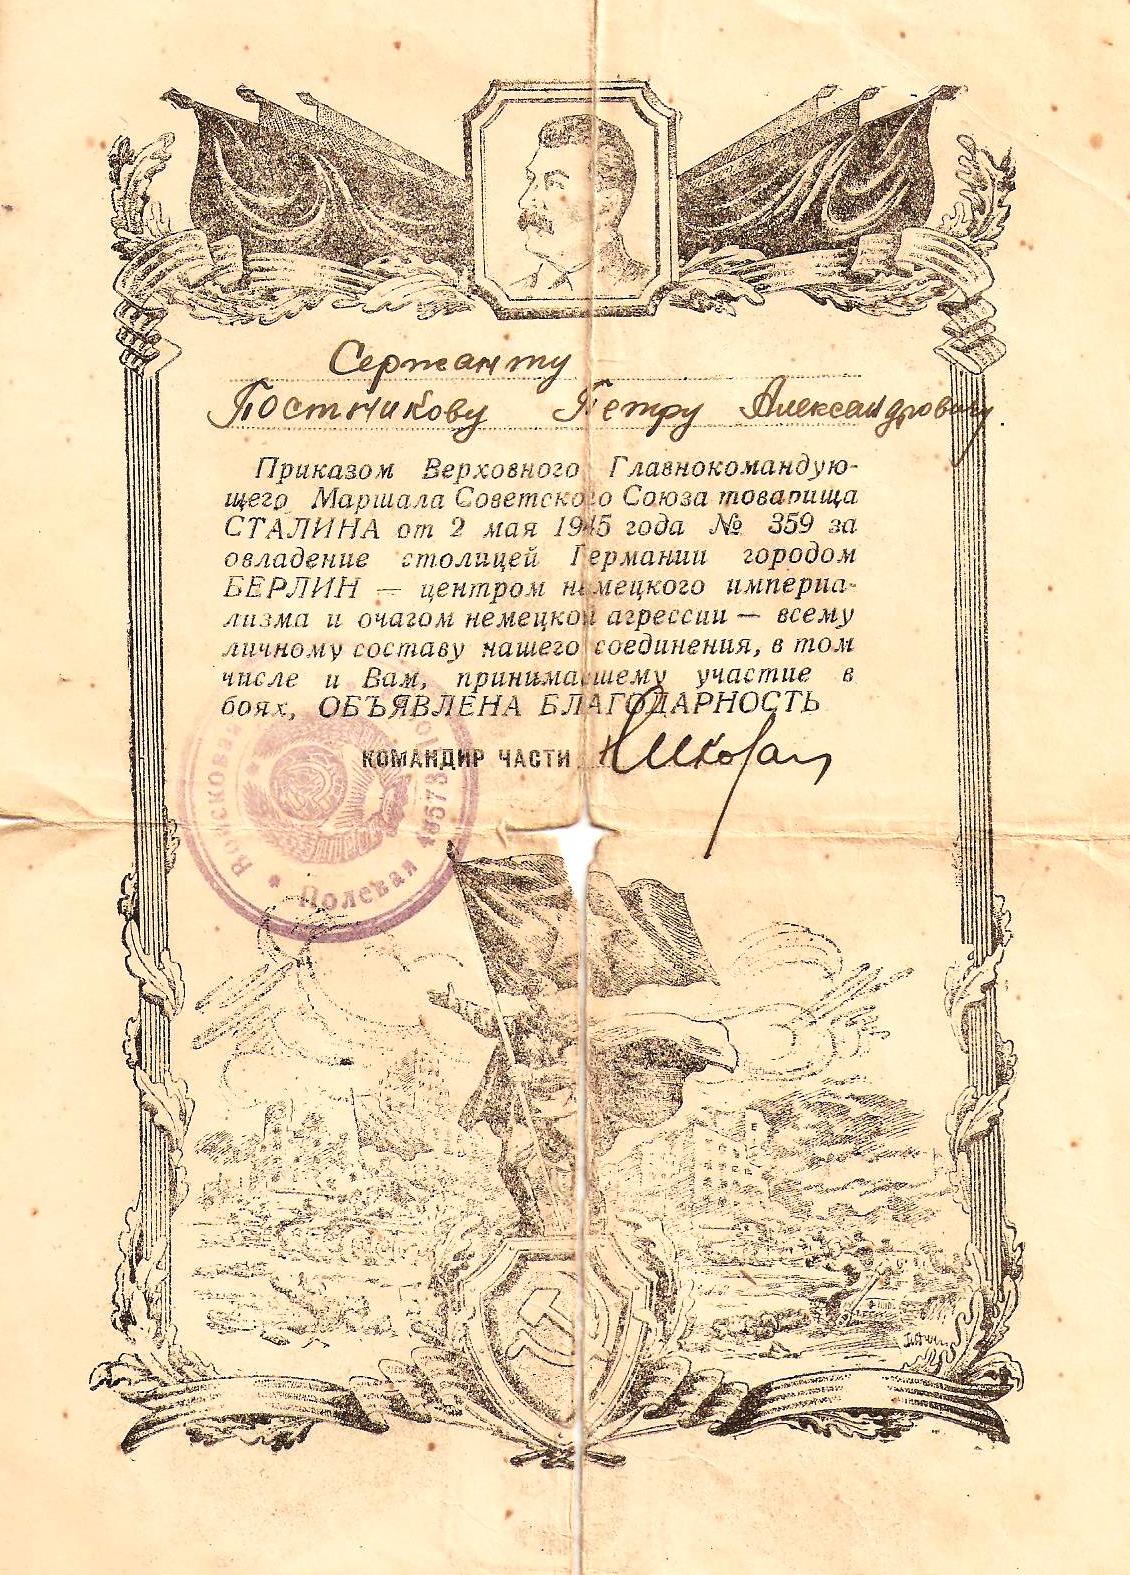 Сержанту
Постникову Петру Александровичу
Приказом Верховного Главнокомандую-
щего Маршала Советского Союза товарища
СТАЛИНА от 2 мая 1945 года № 359 за
овладение столицей Германии городом
БЕРЛИН — центром немецкого империа-
лизма и очагом немецкой агрессии — всему
личному составу нашего соединения, в том
числе и Вам, принимавшему участие в
боях, ОБЪЯВЛЕНА БЛАГОДАРНОСТЬ
КОМАНДИР ЧАСТИ
Войсковая
Полевая